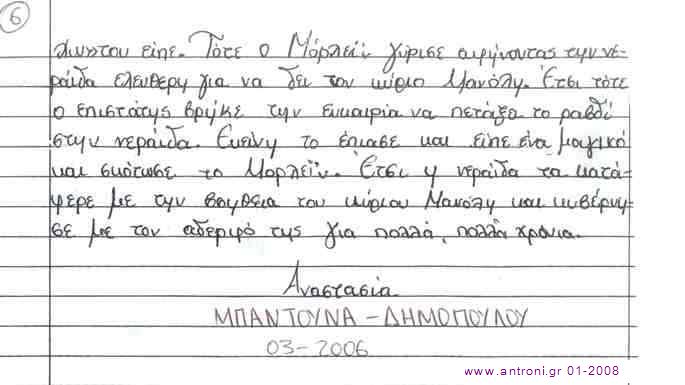 6
του είπε. Τότε ο Μόρλεϊν γύρισε αφήνοντας την νε-
ράιδα ελεύθερη για να δει τον κύριο Μανόλη. Έτσι τότε
ο επιστάτης βρήκε την ευκαιρία να πετάξει το ραβδί
στην νεράιδα. Εκείνη το έπιασε και είπε ένα μαγικό
και σκότωσε το Μορλεϊν. Έτσι η νεράιδα τα κατά-
φερε με την βοήθεια του κύριου Μανόλη και κυβέρνη-
σε με τον αδερφό της για πολλά, πολλά χρόνια.
Αναστασία
ΜΠΑΝΤΟΥΝΑ - ΔΗΜΟΠΟΥΛΟΥ
03-2006
www.antroni.gr 01-2008